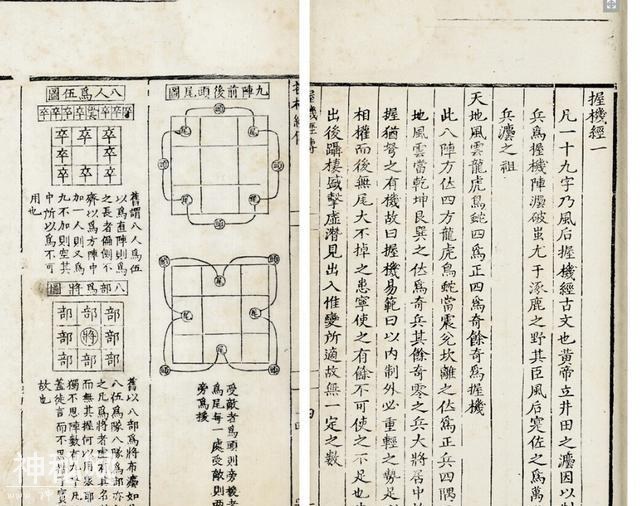 握機經一
凡一十九字乃風后握機經古文也黃帝立井田之灋因以制
兵爲握機陣灋破蚩尤于涿鹿之野其臣風后寔佐之爲萬
兵灋之祖
天地風雲龍虎鳥蛇四爲正四爲奇餘奇爲握機
此八陣方位四方龍虎鳥蛇當震兌坎離之位爲正兵四隅
地風雲當乾坤艮巽之位爲奇兵其餘奇零之兵大將居中
握猶弩之有機故曰握機易範曰以內制外必重輕之勢足
相權而後無尾大不掉之患寧使之有餘不可使之不足也
出後躡棲盛擊虛潛見出入惟變所適故無一定之數
握機經傳
九陣前後頭尾圖
受敵者爲頭則旁援者
爲尾每一處受敵則兩
旁爲援
八人爲伍圖
卒卒卒卒卒卒卒
卒卒卒
卒卒
卒卒卒
舊謂八人爲伍
以爲直陣則爲
之長者偏倒不
齊以爲方陣中
加一人則又爲
九不加則空其
中所以爲不可
用也
八部爲將圖
部部部
部將部
部部部
舊以八部爲將布灋如
八伍爲隊八隊爲部亦
之凡爲將者
而無其握何以
獨不思陣數有九
蓋徒言而不思
故也